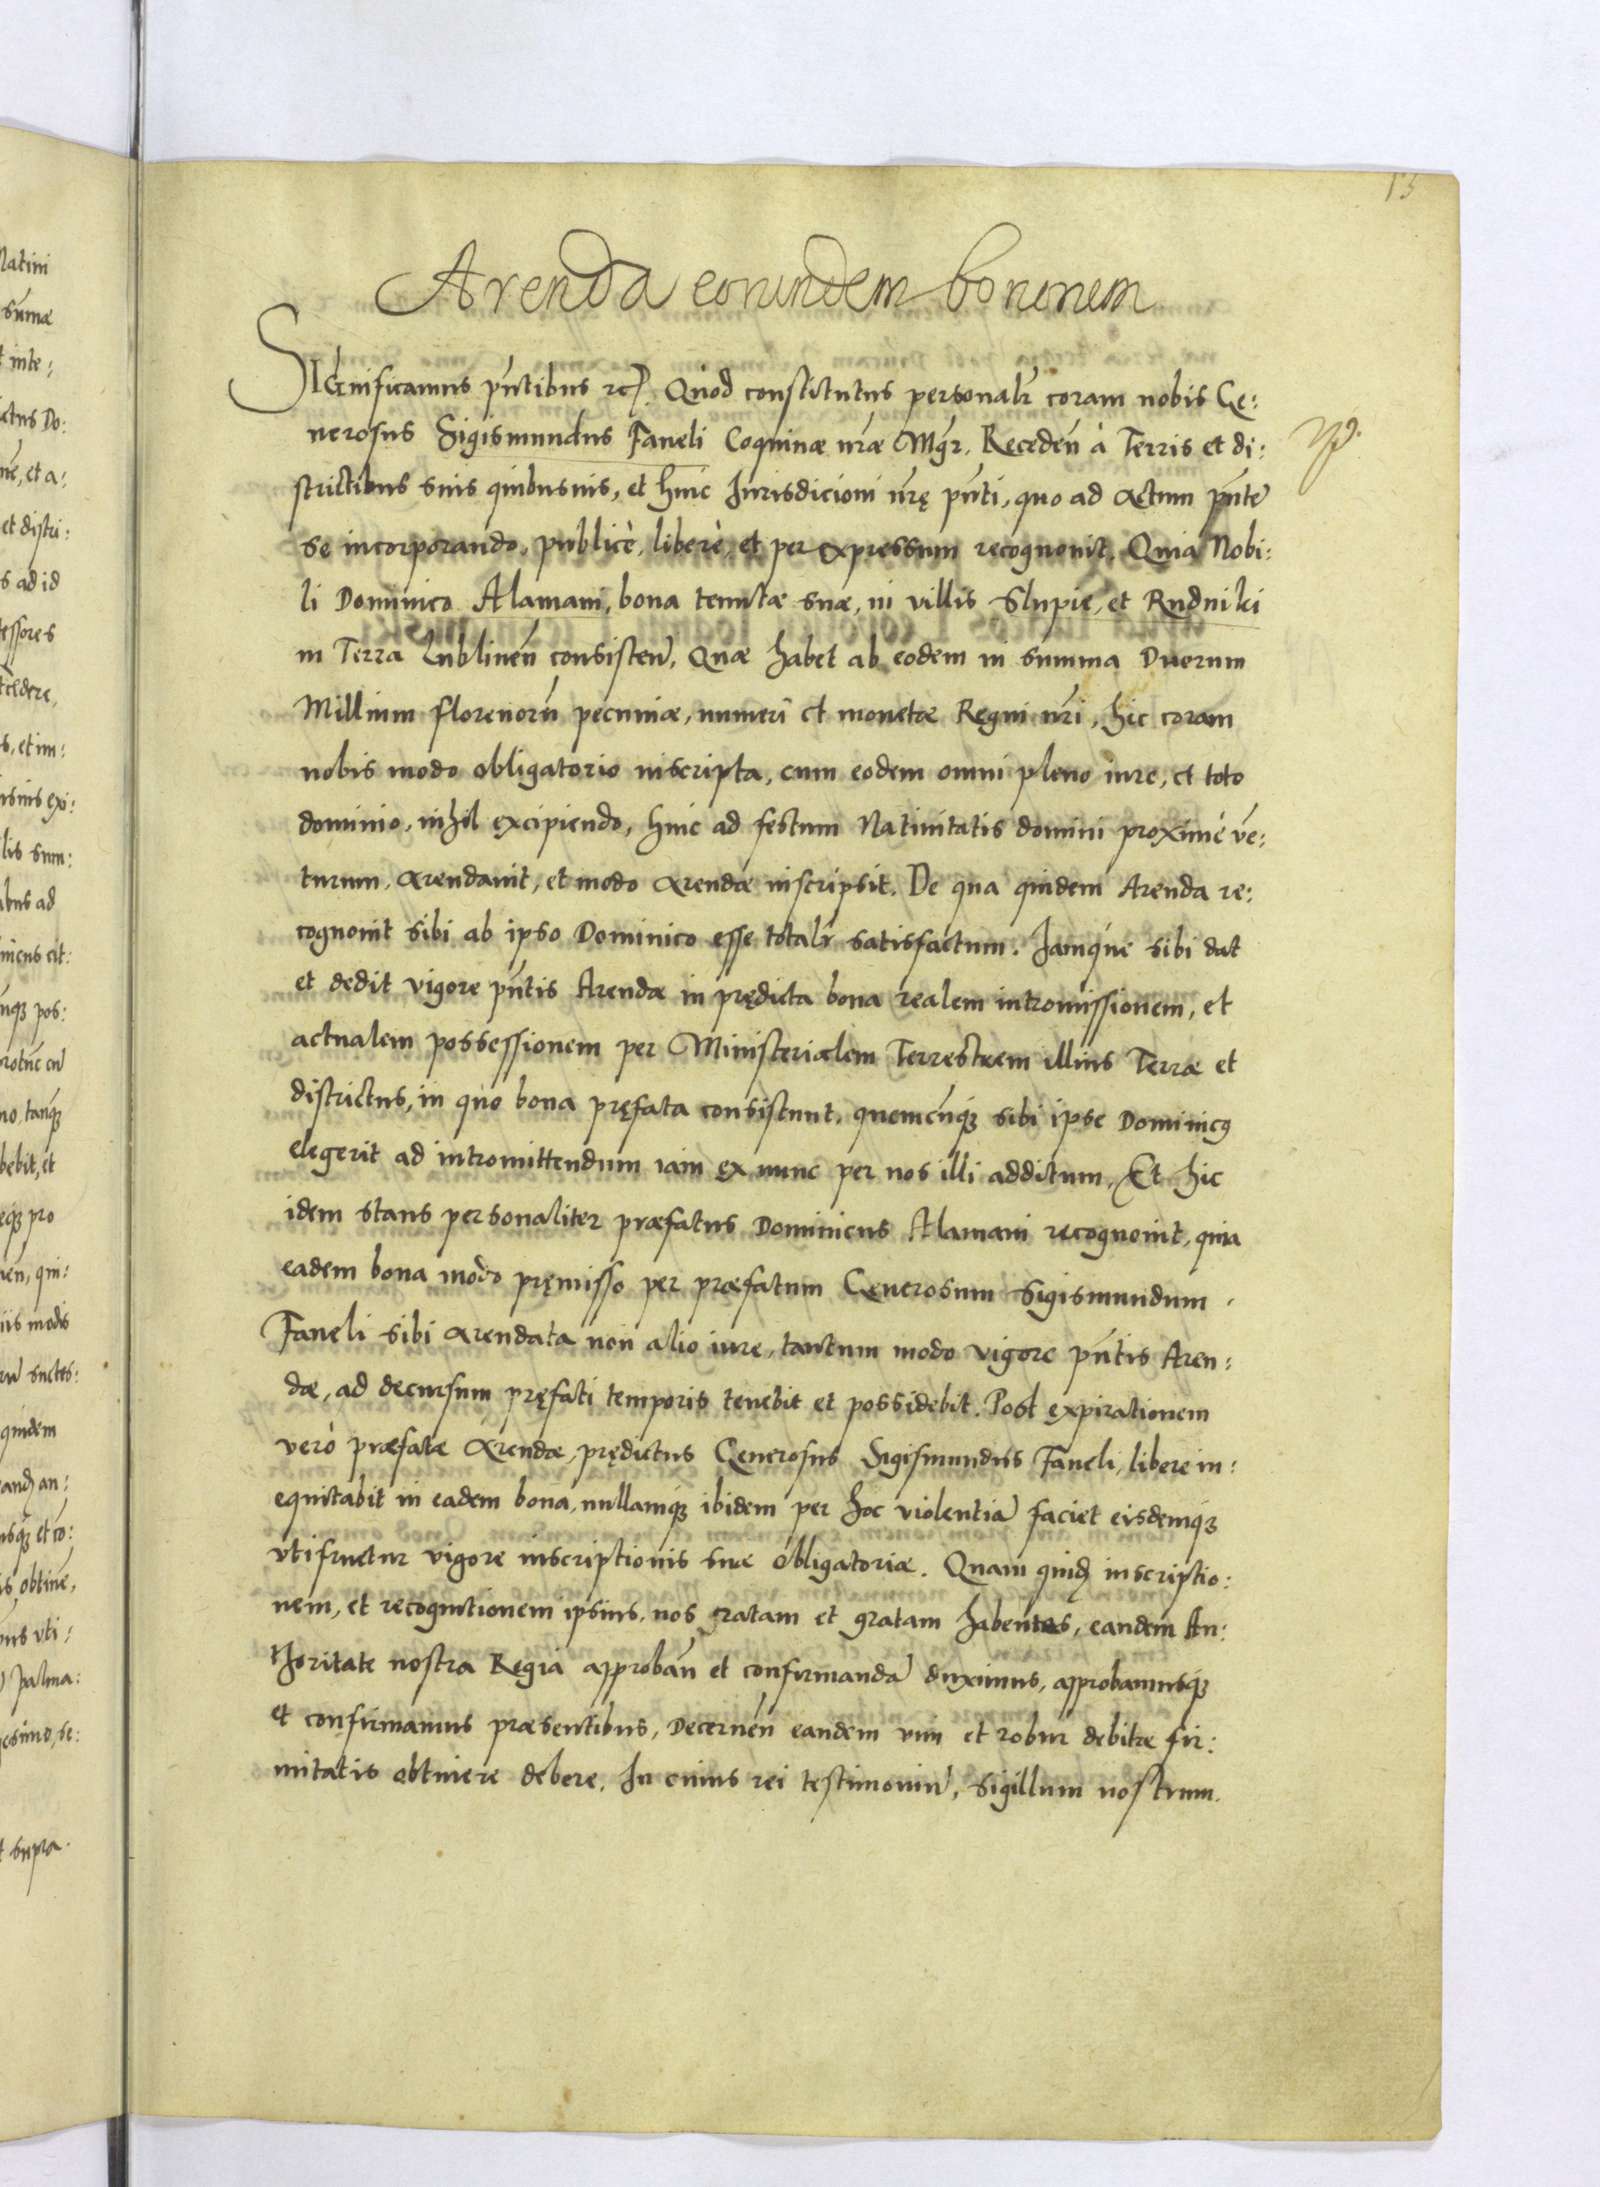 15
Arenda eorundem bonorum
SIGnificamus pñtibus etc. Quod constitutus personalr coram nobis Ge:
nerosus Sigismundus Faneli Coquinæ nræ Mgr. Receden̄ à Terris et di:
strictibus suis quibusuis, et huic Iurisdicioni nrę pñti, quo ad actum pñte
se incorporando, publicè, liberè, et per expressum recognouit. Quia Nobi:
li Dominico Alamani, bona tenutæ suæ, in villis Slupie, et Rudniki
in Terra Lublinen̄ consisten̄, Quæ habet ab eodem in summa Duorum
Millium florenorū pecuniæ, numeri et monetæ Regni nri, hic coram
nobis modo obligatorio inscripta, cum eodem omni pleno iure, et toto
dominio, nihil excipiendo, hinc ad festum Natiuitatis domini proximè vē:
turum, arendauit, et modo arendæ inscripsit. De qua quidem Arenda re:
cognouit sibi ab ipso Dominico esse totalr satisfactum. Iamque sibi dat
et dedit vigore pñtis Arendæ in prędicta bona realem intromissionem, et
actualem possessionem per Ministerialem Terrestrem illius Terræ et
districtus, in quo bona pręfata consistunt, quemcunq3 sibi ipse Dominicus
elegerit ad intromittendum iam ex nunc per nos illi additum. Et hic
idem stans personaliter præfatus Dominicus Alamani recognouit, quia
eadem bona modo pręmisso per præfatum Generosum Sigismundum
Faneli sibi arendata non alio iure, tantum modo vigore pñtis Aren:
dæ, ad decursum pręfati temporis tenebit et possidebit. Post expirationem
verò præfatæ Arendæ, prędictus Generosus Sigismundus Faneli, libere in:
equitabit in eadem bona, nullamq3 ibidem per hoc violentiā faciet eisdemq3
vtifruetur vigore inscriptionis suæ obligatoriæ. Quam quid inscriptio:
nem, et recognitionem ipsius, nos ratam et gratam habentes, eandem Au:
thoritate nostra Regia approban̄ et confirmandā duximus, approbamusq3
et confirmamus præsentibus, Decernen̄ eandem vim et robur debitæ fir:
mitatis obtinere debere. In cuius rei testimoniū, sigillum nostrum.